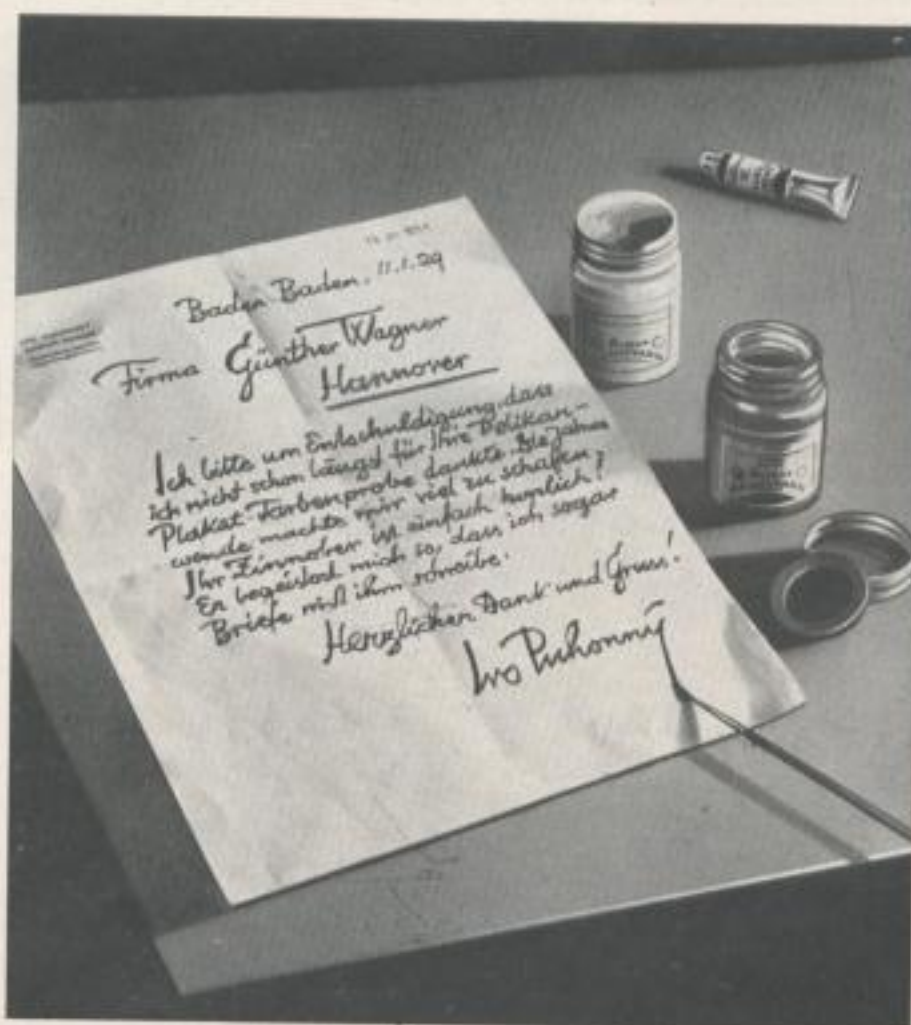 Baden Baden. 11.1.29
Firma Günther Wagner
Hannover
Ich bitte um Entschuldigung, dass
ich nicht schon längst für Ihre Pelikan-
Plakat Farbenprobe dankte. Die Jahres
wende machte mir viel zu schaffen!
Ihr Zinnober ist einfach herrlich!
Er begeistert mich so, dass ich sogar
Briefe mit ihm schreibe.
Herzlichen Dank und Gruss!
Ivo Puhonny